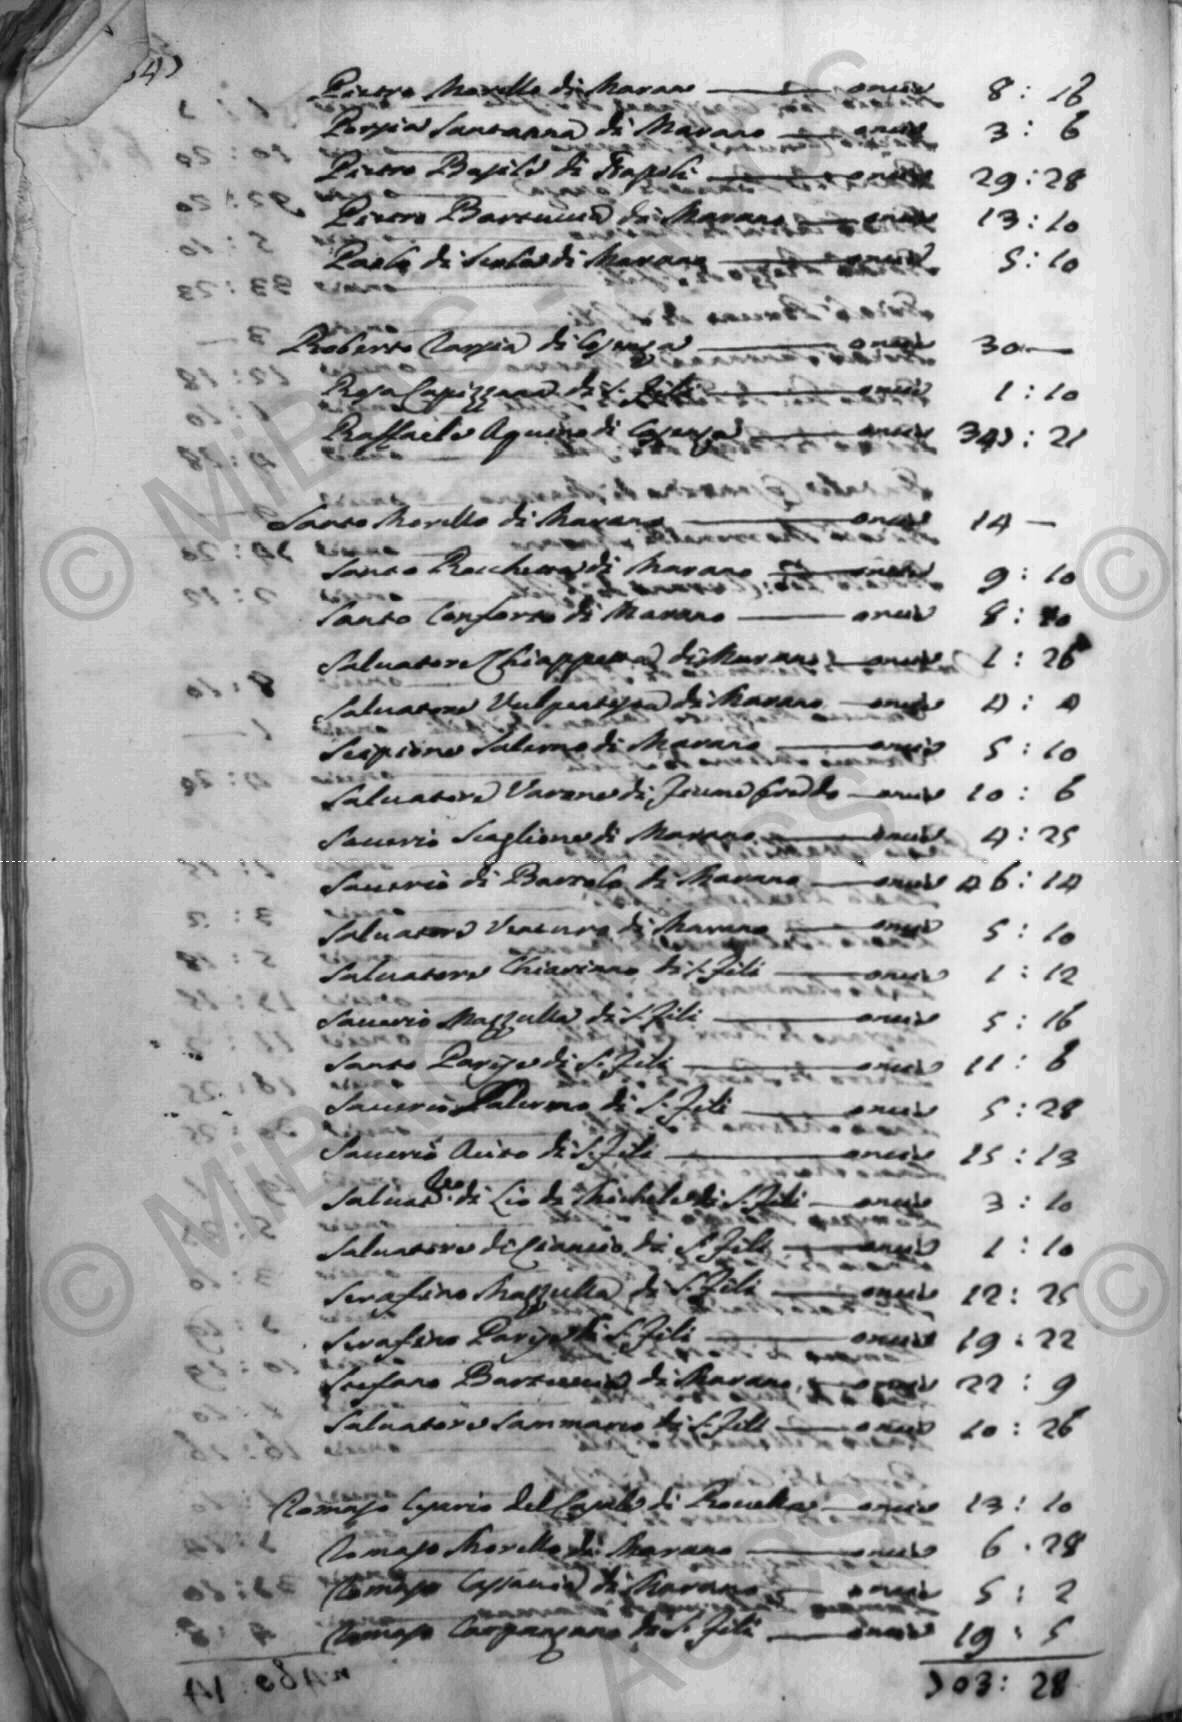 Pietro Morello di Marano — oncie 8 : 16
Porzia Santanna di Marano — oncie 3 : 6
Pietro Basile di Napoli — oncie 29 : 28
Pietro Bartuccia di Marano — oncie 13 : 10
Paolo di di Marano — oncie 5 : 10
Roberto Tarsia di Cosenza — oncie 30 —
Rosa Capizzana di S. Fili — oncie 1 : 10
Raffaele Aquino di Cosenza — oncie : 21
Santo Morello di Marano — oncie 14 —
Santo Rocchetta di Marano — oncie 9 : 10
Santo Conforto di Marano — oncie 8 :
Salvatore Chiappetta di Marano — oncie 1 : 26
Salvatore di Marano — oncie 4 : 4
Scipione Salerno di Marano — oncie 5 : 10
Salvatore Varone di — oncie 10 : 6
Saverio Scaglione di Marano — oncie 4 : 25
Saverio di Bartolo di Marano — oncie 46 : 14
Salvatore Venturo di Marano — oncie 5 : 10
Salvatore Chiarinno di S. Fili — oncie 1 : 12
Saverio Mazzulla di S. Fili — oncie 5 : 16
Santo Parise di S. Fili — oncie 11 : 6
Saverio Palermo di S. Fili — oncie 5 : 28
Saverio Aiuto di S. Fili — oncie 15 : 13
Salvat.re di Lio di Michele di S. Fili — oncie 3 : 10
Salvatore di Ciancio di S. Fili — oncie 1 : 10
Serafino Mazzulla di S. Fili — oncie 12 : 25
Serafino Parise di S. Fili — oncie 19 : 22
Stefano Bartuccia di Marano — oncie 22 : 9
Salvatore Sammarco di S. Fili — oncie 10 : 26
Tomaso del Casale di Rovella — oncie 13 : 10
Tomaso Morello di Marano — oncie 6 : 28
Tomaso di Marano — oncie 5 : 2
Tomaso Carpanzano di S. Fili — oncie 19 : 5
03 : 28
© MiBAC - ASCS ©
© MiBAC - ASCS ©